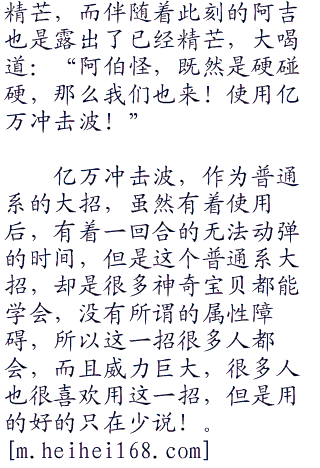 精芒，而伴随着此刻的阿吉
也是露出了已经精芒，大喝
道：“阿伯怪，既然是硬碰
硬，那么我们也来！使用亿
万冲击波！”
亿万冲击波，作为普通
系的大招，虽然有着使用
后，有着一回合的无法动弹
的时间，但是这个普通系大
招，却是很多神奇宝贝都能
学会，没有所谓的属性障
碍，所以这一招很多人都
会，而且威力巨大，很多人
也很喜欢用这一招，但是用
的好的只在少说！。
[m.heihei168.com]